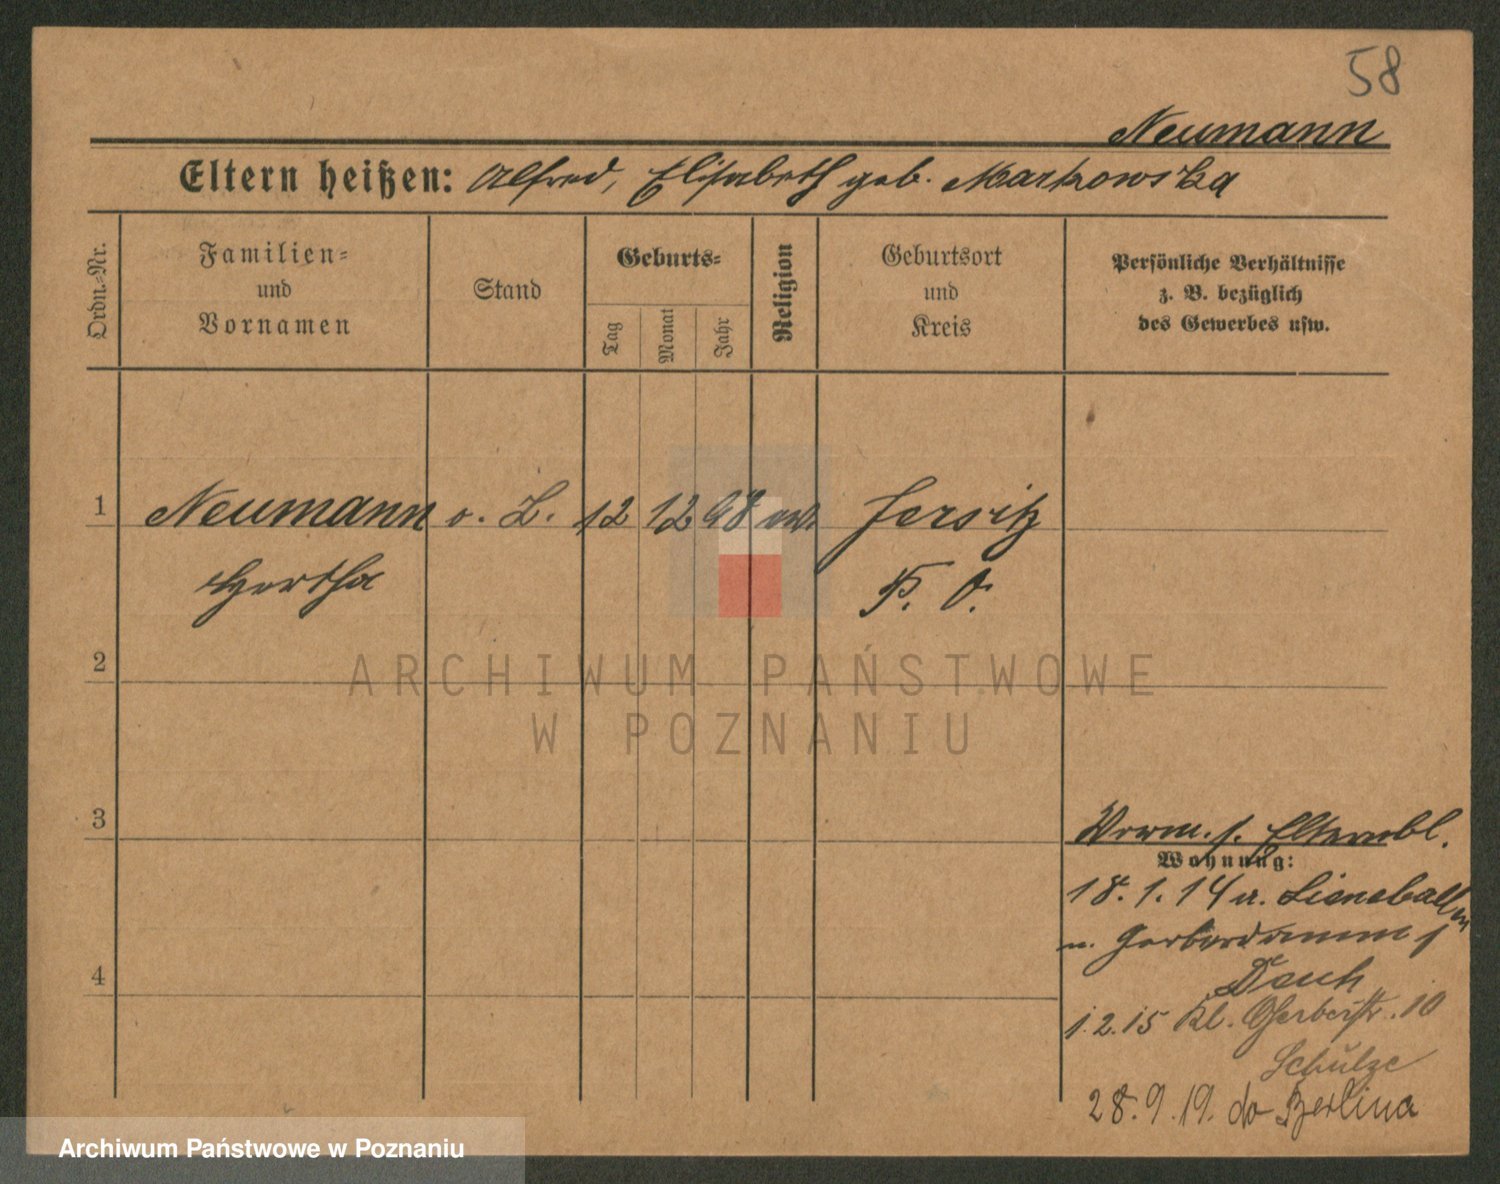 58
Neumann
Eltern heißen: Alfred, Elisabeth geb. Markowska
Ordn.-Nr.
Familien-
und
Vornamen
Stand
Geburts-
Tag
Monat
Jahr
Religion
Geburtsort
und
Kreis
Persönliche Verhältnisse
z. B. bezüglich
des Gewerbes usw.
1 Neumann o. B. 12 12 98 Jersitz
Hertha P. O.
2
ARCHIWUM PAŃSTWOWE
W POZNANIU
3
Vorm. s. Elternbl.
Wohnung:
18. 1. 14 a.
u. Gerberdamm 1
4
1. 2. 15 Kl. Gerberstr. 10
Schulze
28. 9. 19. do Berlina
Archiwum Państwowe w Poznaniu